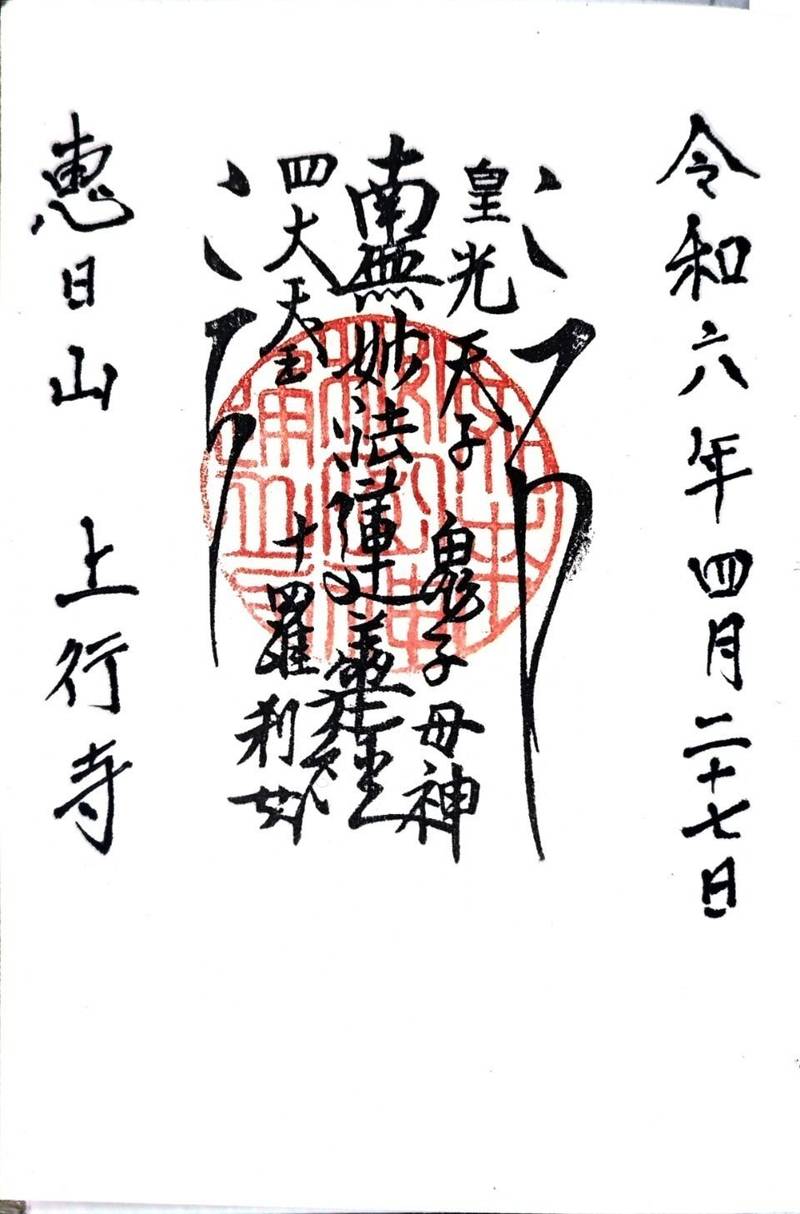 令和六年四月二十七日
皇光天子 鬼子母神
南無妙法蓮華経
四大天王 十羅刹女
惠日山 上行寺